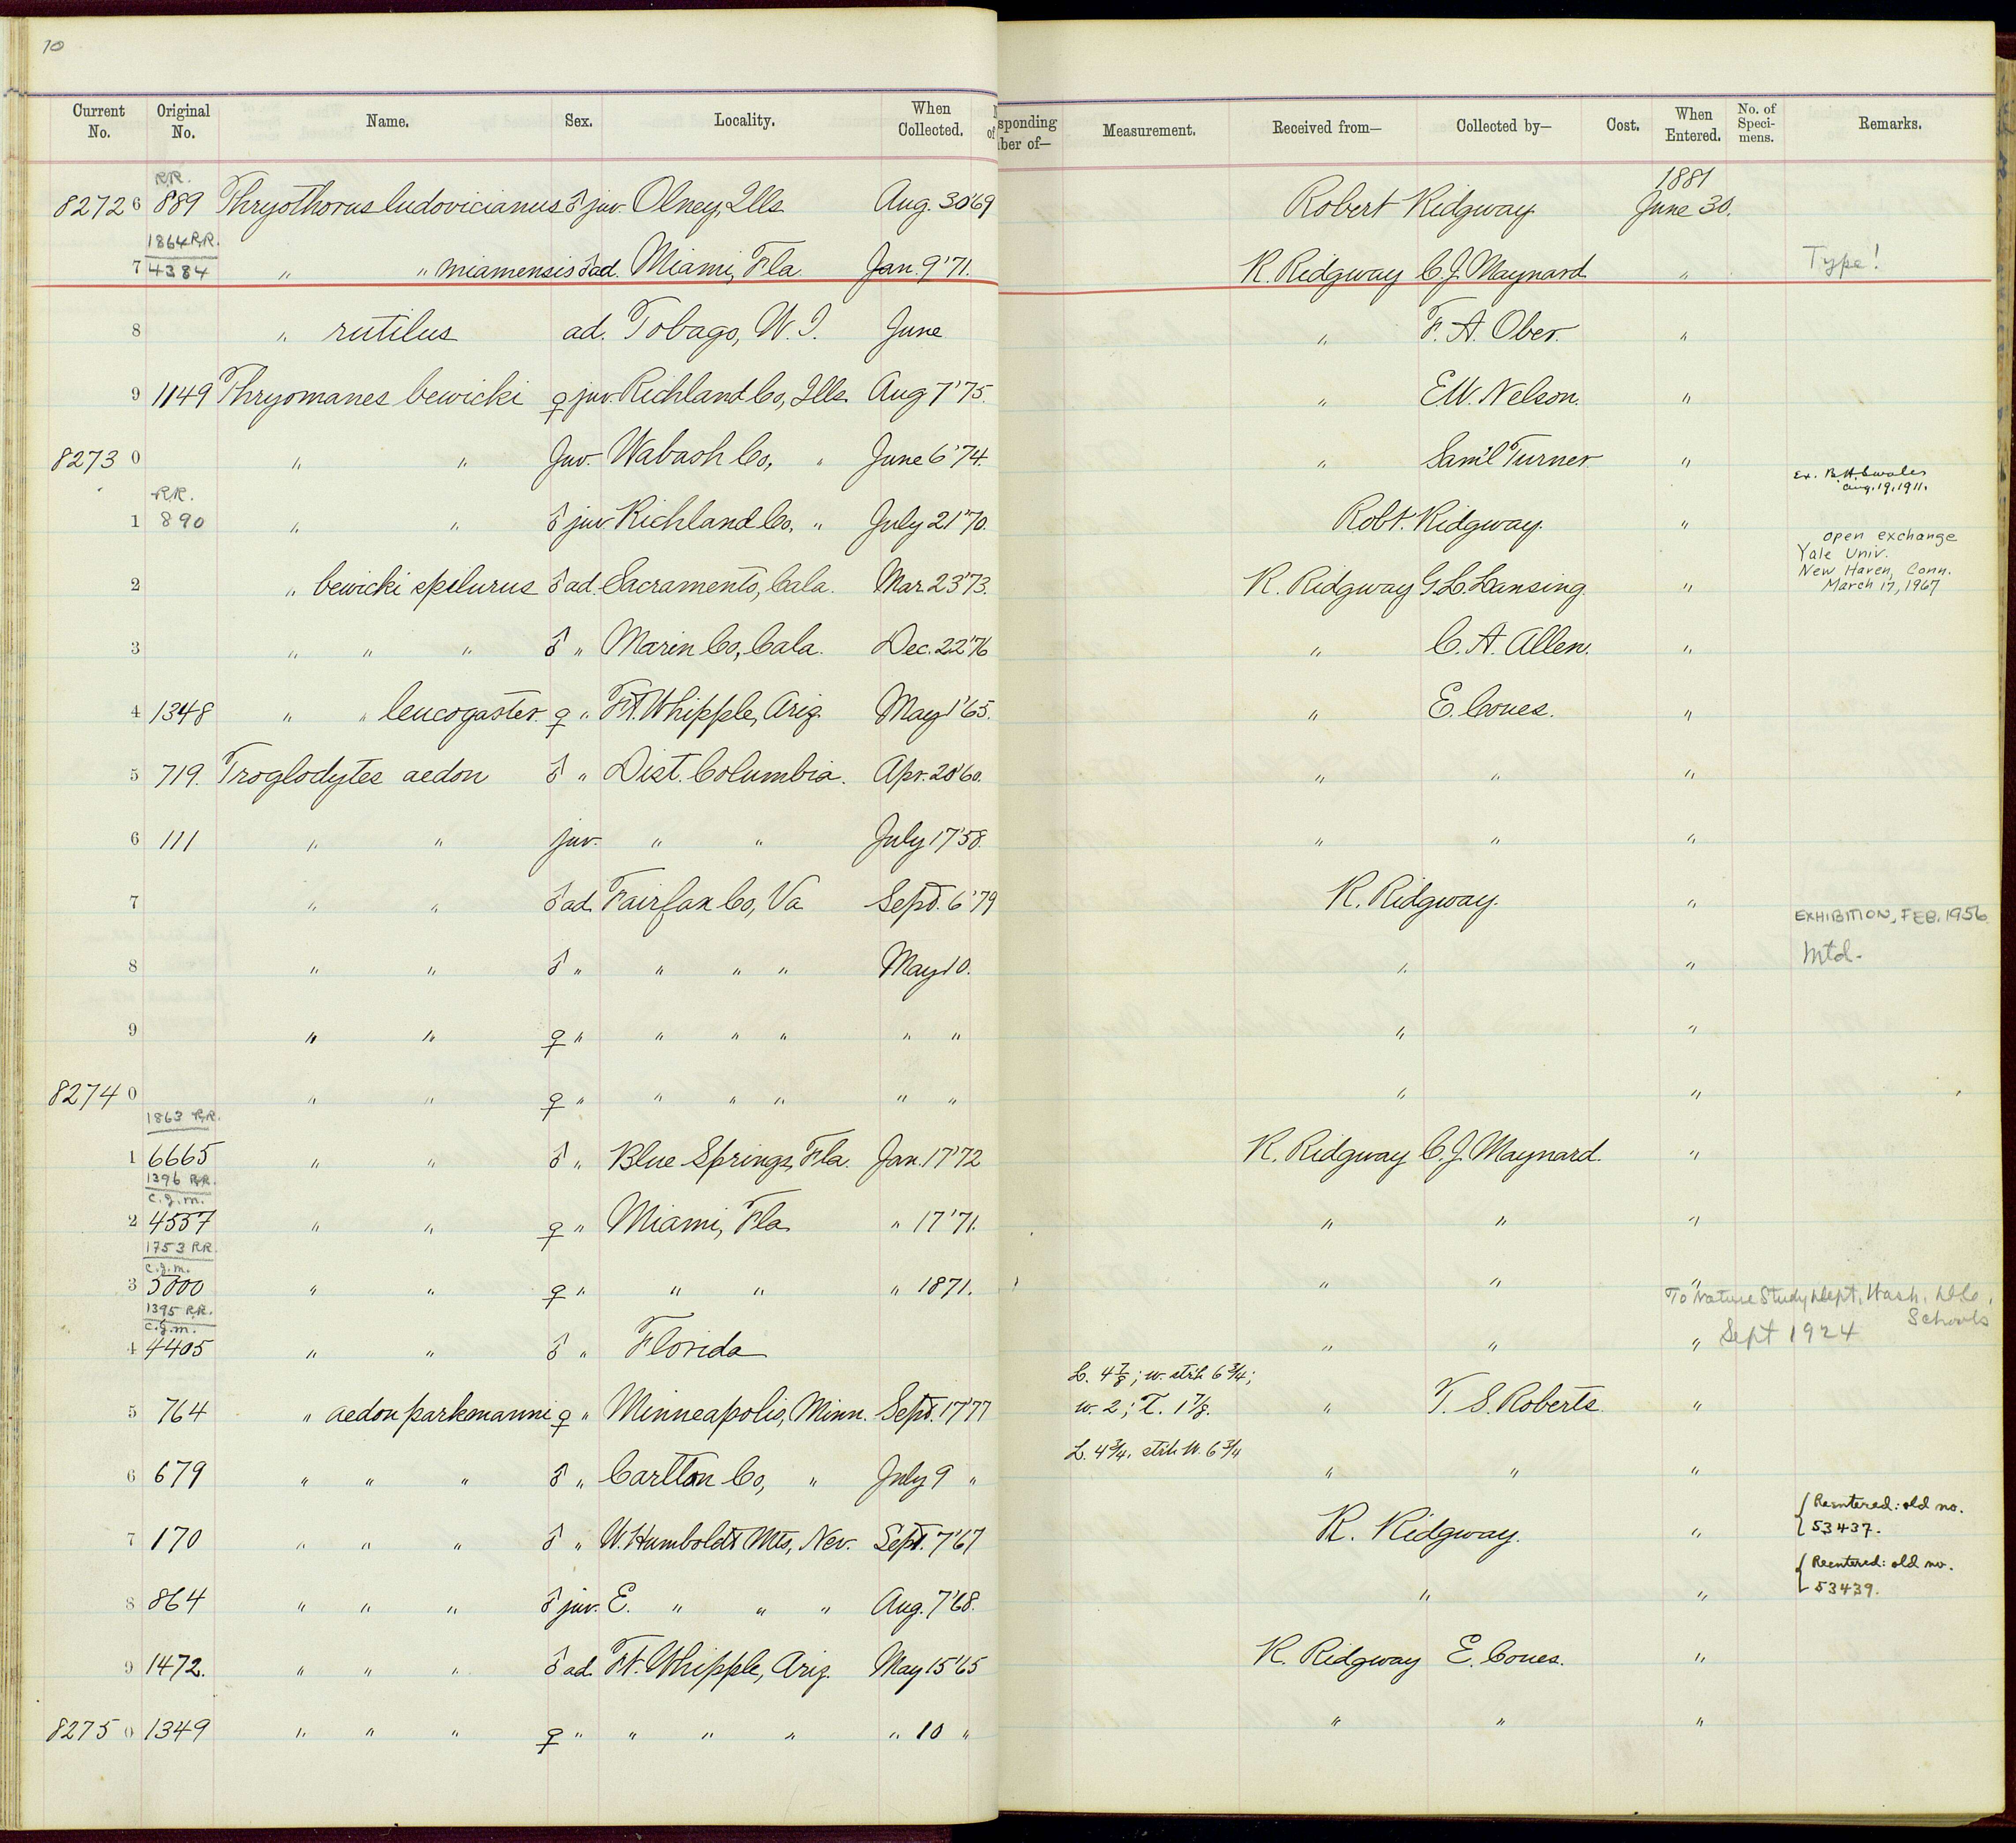 10
Current No. Original No. Name. Sex. Locality. When Collected. sponding ber of— Measurement. Received from— Collected by— Cost. When Entered. No. of Speci- mens. Remarks.
R.R. 1881
8272 6 889 Thryothorus ludovicianus ♂ juv. Olney, Ills. Aug. 30 '69 Robert Ridgway. June 30.
1864 R.R.
7 4384 " " miamensis ♂ ad. Miami, Fla. Jan. 9 '71. R. Ridgway C. J. Maynard " Type!
8 " rutilus ad. Tobago, W. I. June " F. A. Ober. "
9 1149 Thryomanes bewicki ♀ juv. Richland Co, Ills. Aug 7 '75. " E.W. Nelson. "
8273 0 " " Juv. Wabash Co, " June 6 '74. " Sam'l Turner "
Ex. B.H. Swales
Aug. 19, 1911.
R.R.
1 890 " " ♂ juv. Richland Co, " July 21 '70. Robt. Ridgway. "
open exchange
Yale Univ.
New Haven, Conn.
March 17, 1967
2 " bewicki spilurus ♂ ad. Sacramento, Cala. Mar. 23 '73. R. Ridgway G. L. Lansing "
3 " " " ♂ " Marin Co, Cala. Dec. 22 '76 " C. A. Allen. "
4 1348 " " leucogaster. ♀ " Ft. Whipple, Ariz. May 1 '65. " E. Coues. "
5 719. Troglodytes aedon ♂ " Dist. Columbia. Apr. 20 '60. " " "
6 111 " " juv. " " July 17 '58. " " "
7 " " ♂ ad. Fairfax Co, Va Sept. 6 '79 R. Ridgway. "
EXHIBITION, FEB. 1956
8 " " ♂ " " " " May 10. " " Mtd.
9 " " ♀ " " " " " " " "
8274 0 " " ♀ " " " " " " " "
1863 R.R.
1 6665 " " ♂ " Blue Springs, Fla. Jan. 17 '72 R. Ridgway C. J. Maynard. "
1396 R.R.
C.J.M.
2 4557 " " ♀ " Miami, Fla " 17 '71. " " "
1753 R.R.
C.J.M.
3 5000 " " ♀ " " " " 1871. " " "
To Nature Study Dept, Wash. D.C. Schools
1395 R.R.
C.J.M.
4 4405 " " ♂ " Florida " " " Sept 1924
L. 4 7/8; w. strh 6 3/4;
5 764 " aedon parkmanni ♀ " Minneapolis, Minn. Sept. 17 '77 w. 2; T. 1 7/8. " T. S. Roberts "
L. 4 3/4, strh W. 6 3/4
6 679 " " " ♂ " Carlton Co, " July 9 " " " "
7 170 " " " ♂ " W. Humboldt Mts, Nev. Sept. 7 '67 R. Ridgway. " Reentered: old no.
53437.
8 864 " " " ♂ juv. E. " " " Aug. 7 '68. " " Reentered: old no.
53439.
9 1472. " " " ♂ ad. Ft. Whipple, Ariz. May 15 '65 R. Ridgway E. Coues. "
8275 0 1349 " " " ♀ " " " " " 10 " " " "